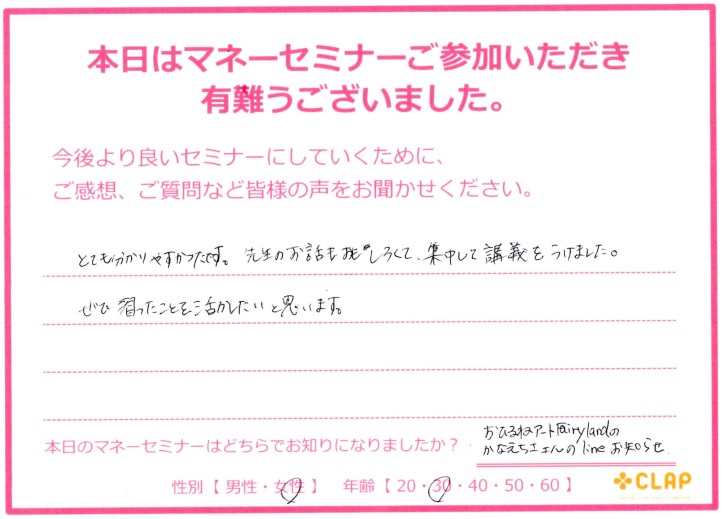 本日はマネーセミナーご参加いただき
有難うございました。
今後より良いセミナーにしていくために、
ご感想、ご質問など皆様の声をお聞かせください。
とても分かりやすかったです。先生のお話もしろくて、集中して講義をうけました。
ぜひ習ったことを活かしたいと思います。
本日のマネーセミナーはどちらでお知りになりましたか？
おひるねアートFairylandの
かなえちさんのlineお知らせ
性別【男性・女性】 年齢【20・30・40・50・60】
CLAP